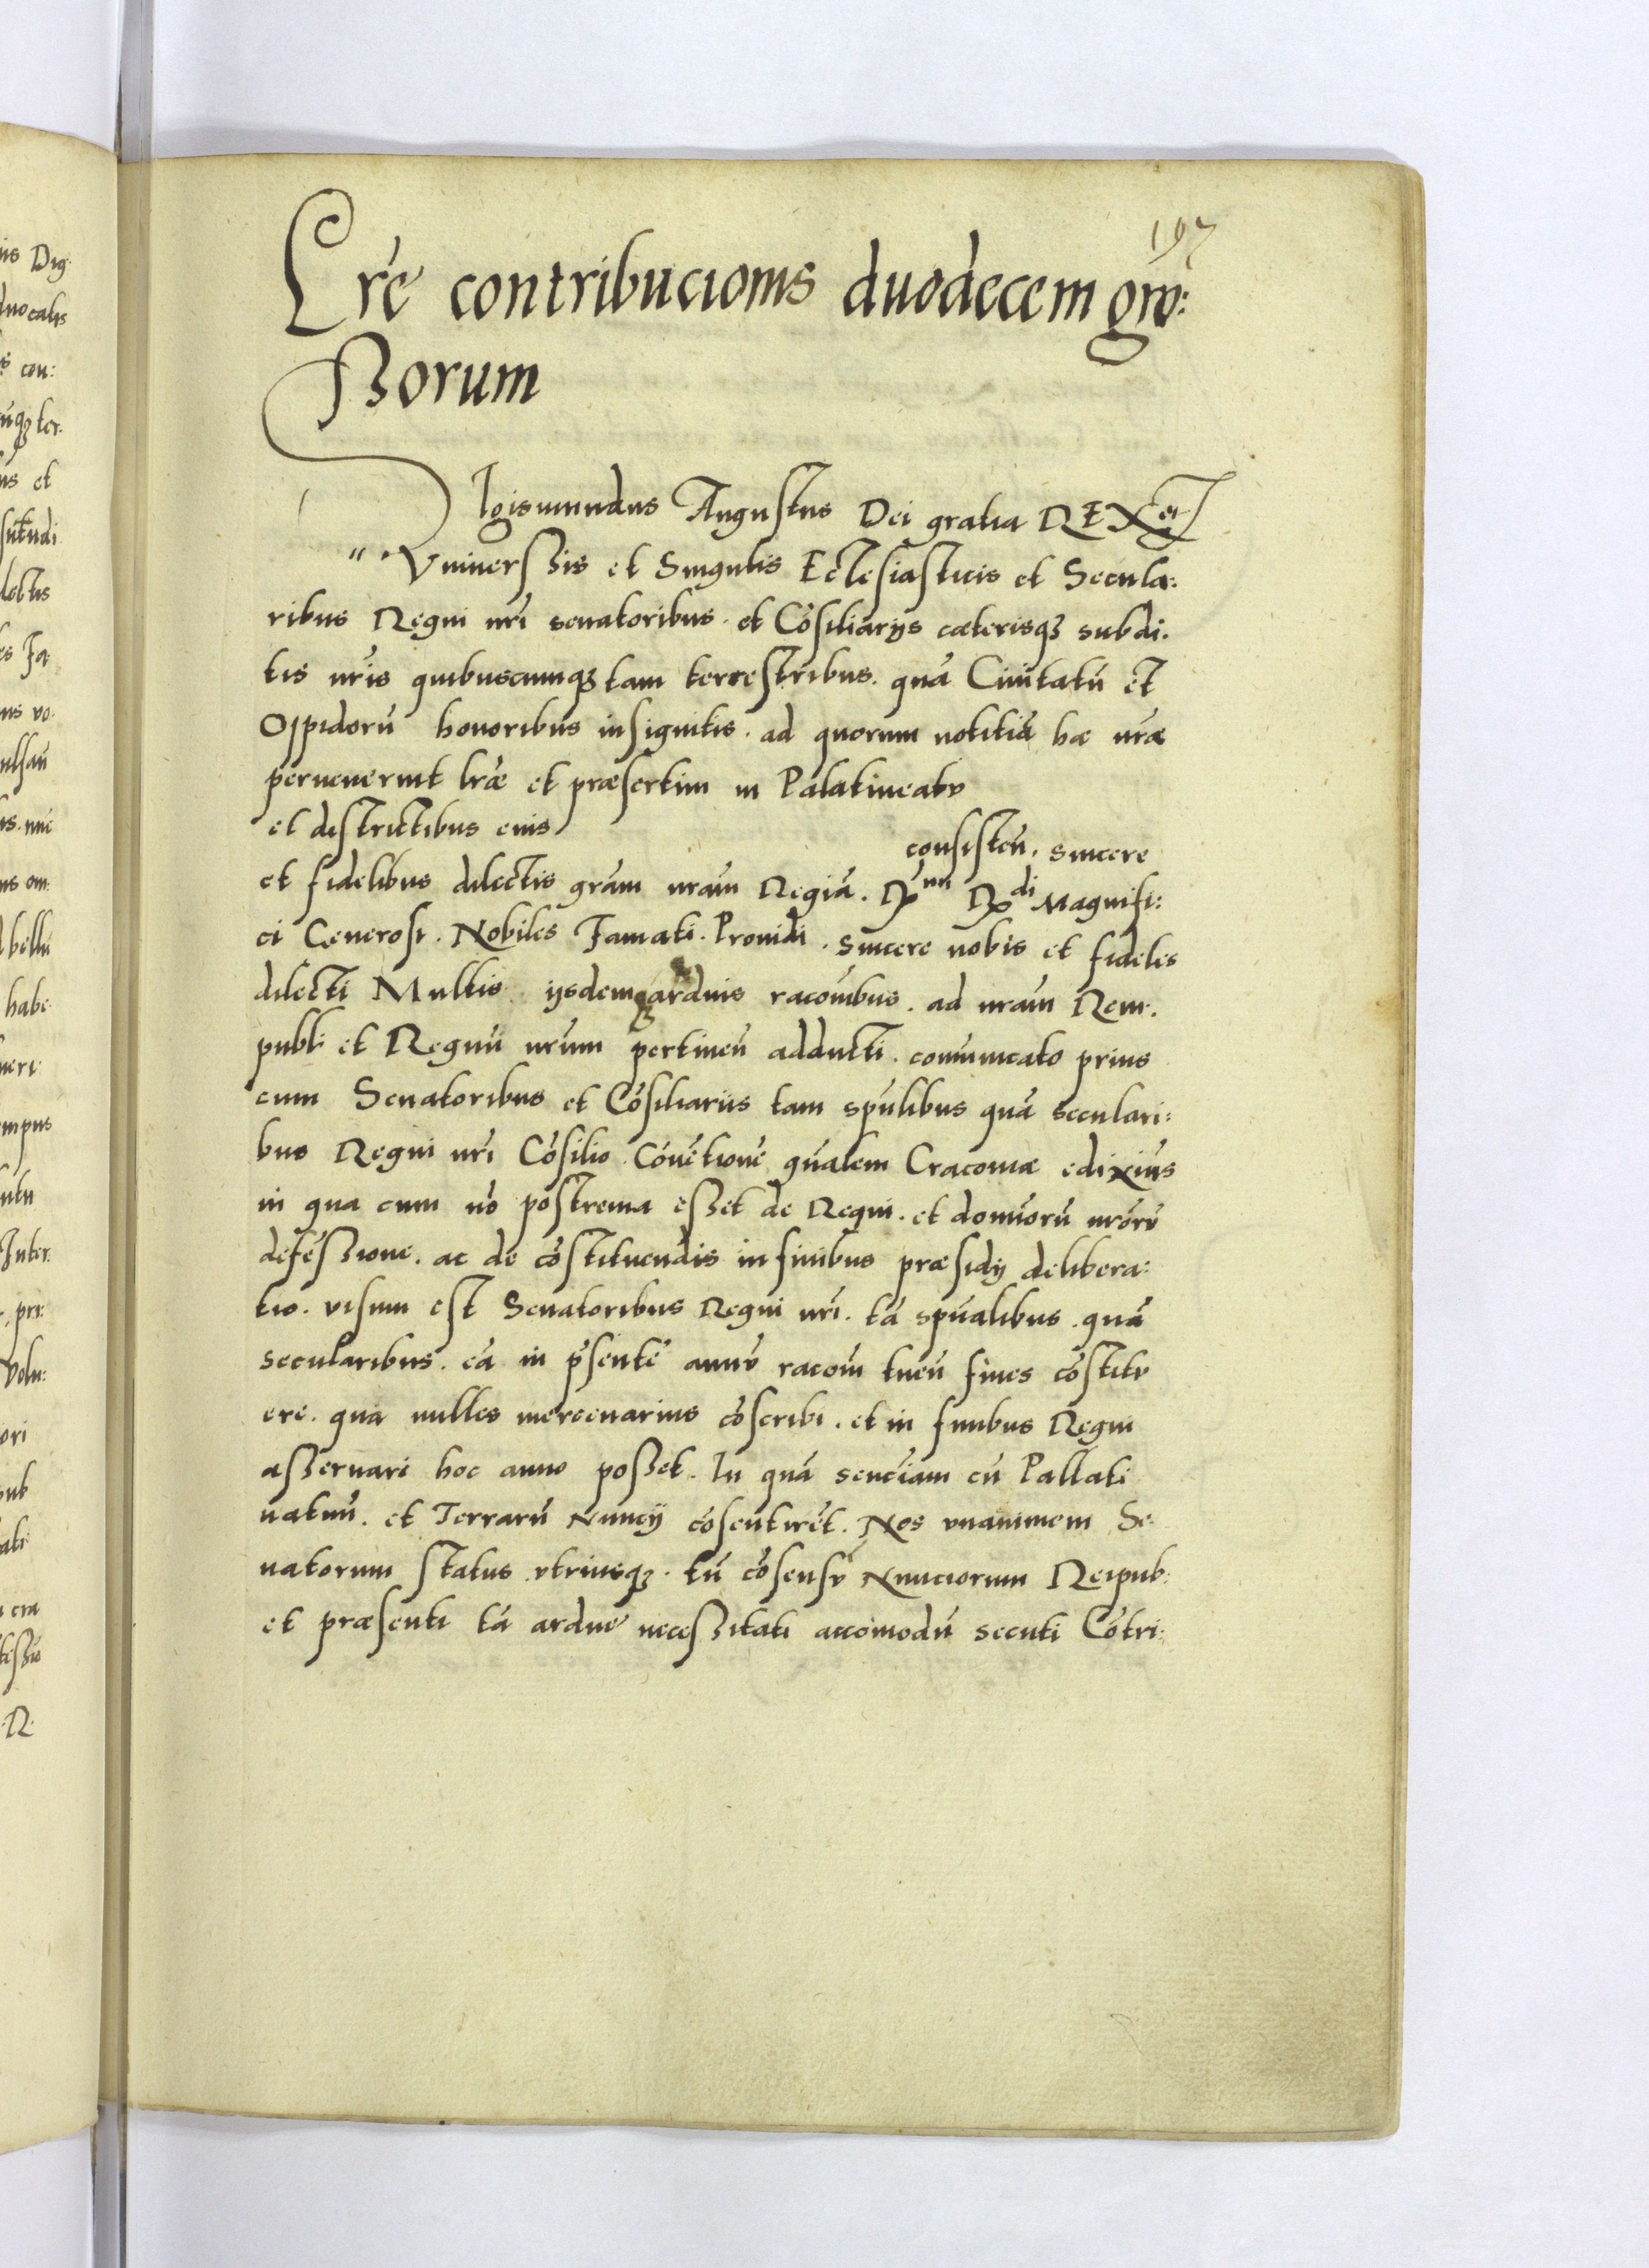 197
Lr̃e contribucionis duodecem gro:
ßorum
Sigismundus Augustus Dei gratia REX etc
Vniuerßis et Singulis Ecclesiasticis et Secula:
ribus Regni nr̃i senatoribus. et Cõsiliarijs cæterisqȝ subdi.
tis nr̃is quibuscumqȝ tam terrestribus. quã Ciuitatũ et
Oppidorũ honoribus insignitis. ad quorum notitiã hæ nr̃æ
peruenerint lr̃æ et præsertim in Palatineatu
et districtibus eius
consisteñ. sincere
et fidelibus dilectis grãm nrãm Regiã. Rnn Rndi Magnifi:
ci Generosi. Nobiles Famati. Prouidi. sincere nobis et fideles
dilecti Multis ijsdemqȝ arduis racoñibus. ad nrãm Rem.
publi: et Regnũ nrũm pertineñ adducti. comũnicato prius
cum Senatoribus et Cõsiliariis tam spũlibus quã seculari:
bus Regni nr̃i Cõsilio. Cõuẽtione qualem Cracouiæ ediximus
in qua cum nõ postrema eßet de Regni. et domiorũ nrõrũ
defeßione. ac de cõstituendis in finibus præsidij delibera:
tio. visum est Senatoribus Regni nr̃i. tã spũalibus. quã
secularibus. eã in p̃sentẽ annũ racoñ tueñ fines cõstitu
ere. qua milles mercenarius cõscribi. et in finibus Regni
aßeruari hoc anno poßet. In quã senc̃iam cũ Pallati
natuũ. et Terrarũ Nuncij cõsentirẽt. Nos vnanimem Se:
natorum status vtriusqȝ. tũ cõsensũ Nunciorum Reipub:
et præsenti tã ardue neceßitati accõmodũ secuti Cõtri: